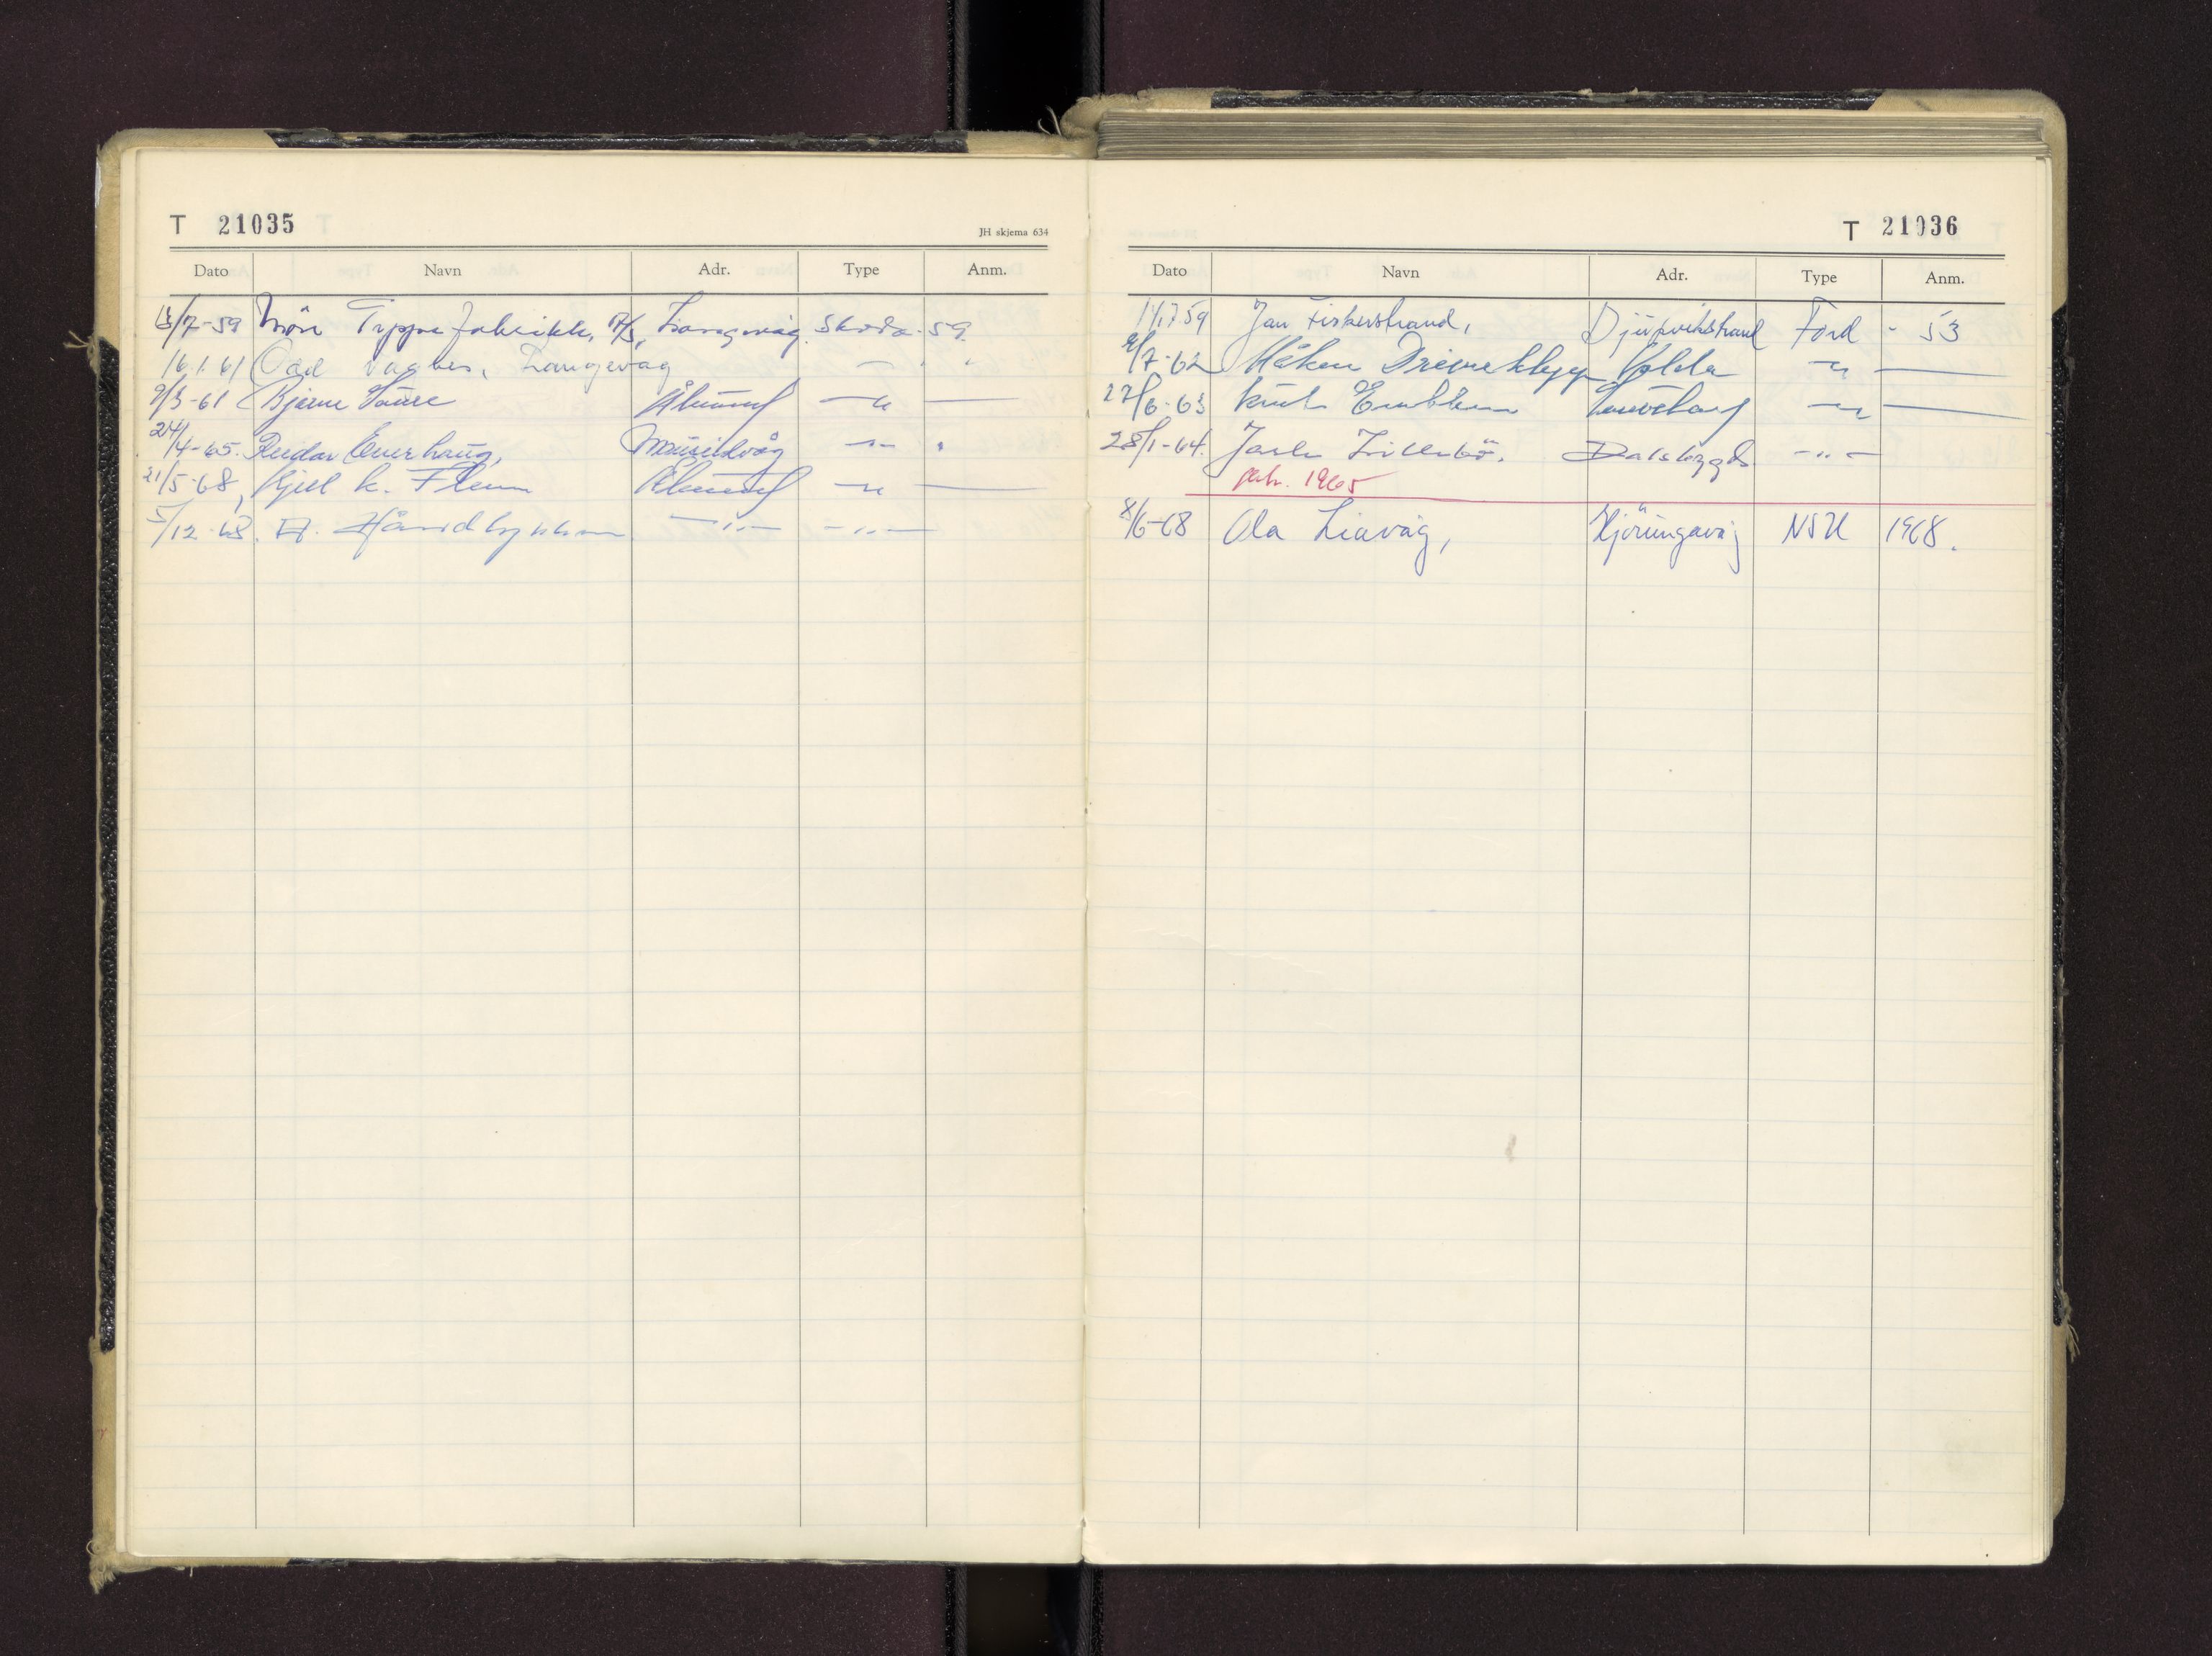 T 21035
JH skjema 634
Dato Navn Adr. Type Anm.
13/7-59 Møre fabrikk, A/S, Langevåg. Skoda - 59.
16.1.61 Odd Vagnes, Langevåg — " "
9/3-61 Bjarne Saure Ålesund —"—
24/4-65. Reidar Emerhaug, —"— "
21/5-68, Kjell K. Flem Ålesund —"—
5/12-68. A. —"— —"—
T 21036
Dato Navn Adr. Type Anm.
11/7 59 Jan Fiskerstrand, Ford - 53
9/7-62 Håkon Driveklepp Volda —"—
27/6-63 Knut Emblem —"—
28/1-64. Jarle Lillebö. Dalsbygda —"—
1965
8/6-68 Ola Liavåg, Hjörungavåg NSU 1968.